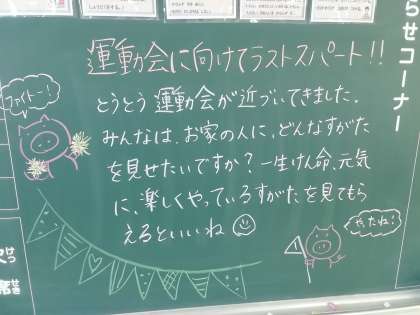 運動会に向けてラストスパート!!
ファイトー!
とうとう運動会が近づいてきました。
みんなは、お家の人に、どんなすがた
を見せたいですか?一生けん命、元気
に、楽しくやっているすがたを見てもら
えるといいね
やったね!
らせコーナー
せつ
席
せき